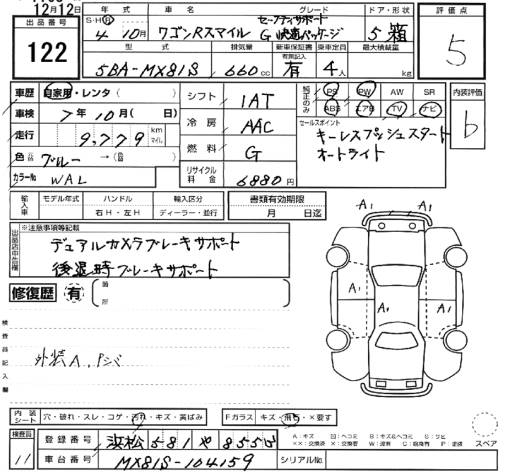 12月12日
出品番号
122
S・H・R 4年 10月
車名
ワゴンRスマイル
グレード
セーフティサポート
G 快適パッケージ
ドア・形状
5 箱
評価点
5
型式
5BA-MX81S
排気量
660cc
新車保証書
有
乗車定員
4人
最大積載量
kg
車歴
自家用・レンタ( )
車検 7年 10月( 日)
走行 9,779 km マイル
色 ブルー → ( )
カラーNo WAL
シフト 1AT
冷房 AAC
燃料 G
リサイクル料金 6880円
純正のみ
PS PW AW SR
ABS エアB TV ナビ
内装評価
b
セールスポイント
キーレスプッシュスタート
オートライト
輸入車 モデル年式 ハンドル 輸入区分
右H・左H ディーラー・並行
書類有効期限
月 日迄
※注意事項等記載
デュアルカメラブレーキサポート
後退時ブレーキサポート
修復歴 有
検査員記入欄
外装A,
A1
A1
A1
A1
内装シート 穴・破れ・スレ・コゲ・汚れ・キズ・黄ばみ
Fガラス キズ・飛石・×要す
検査員
11
登録番号 浜松 581 や 8550
車台番号 MX81S-104159
シリアルNo.
スペア